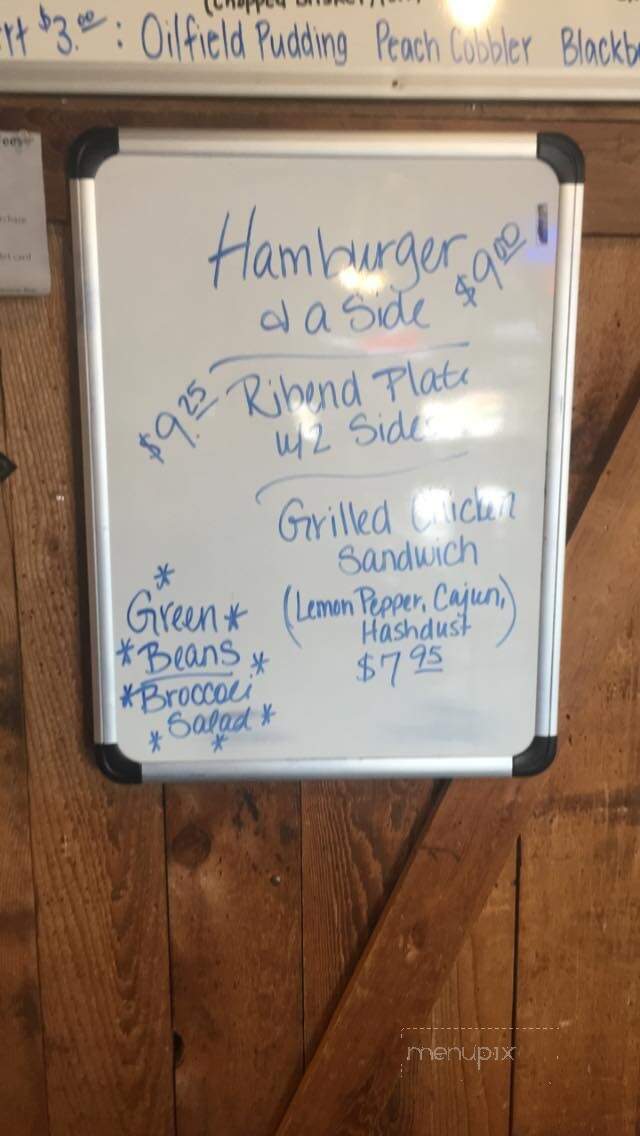 (Chopped Brisket
rt $3.00: Oilfield Pudding Peach Cobbler Blackb
Hamburger
& a Side $9.00
$9.25 Ribend Plate
w/2 Sides
Grilled Chicken
Sandwich
(Lemon Pepper, Cajun,
Hashdust)
$7.95
*
Green*
*Beans*
*Broccoli
Salad*
* *
chase
menupix